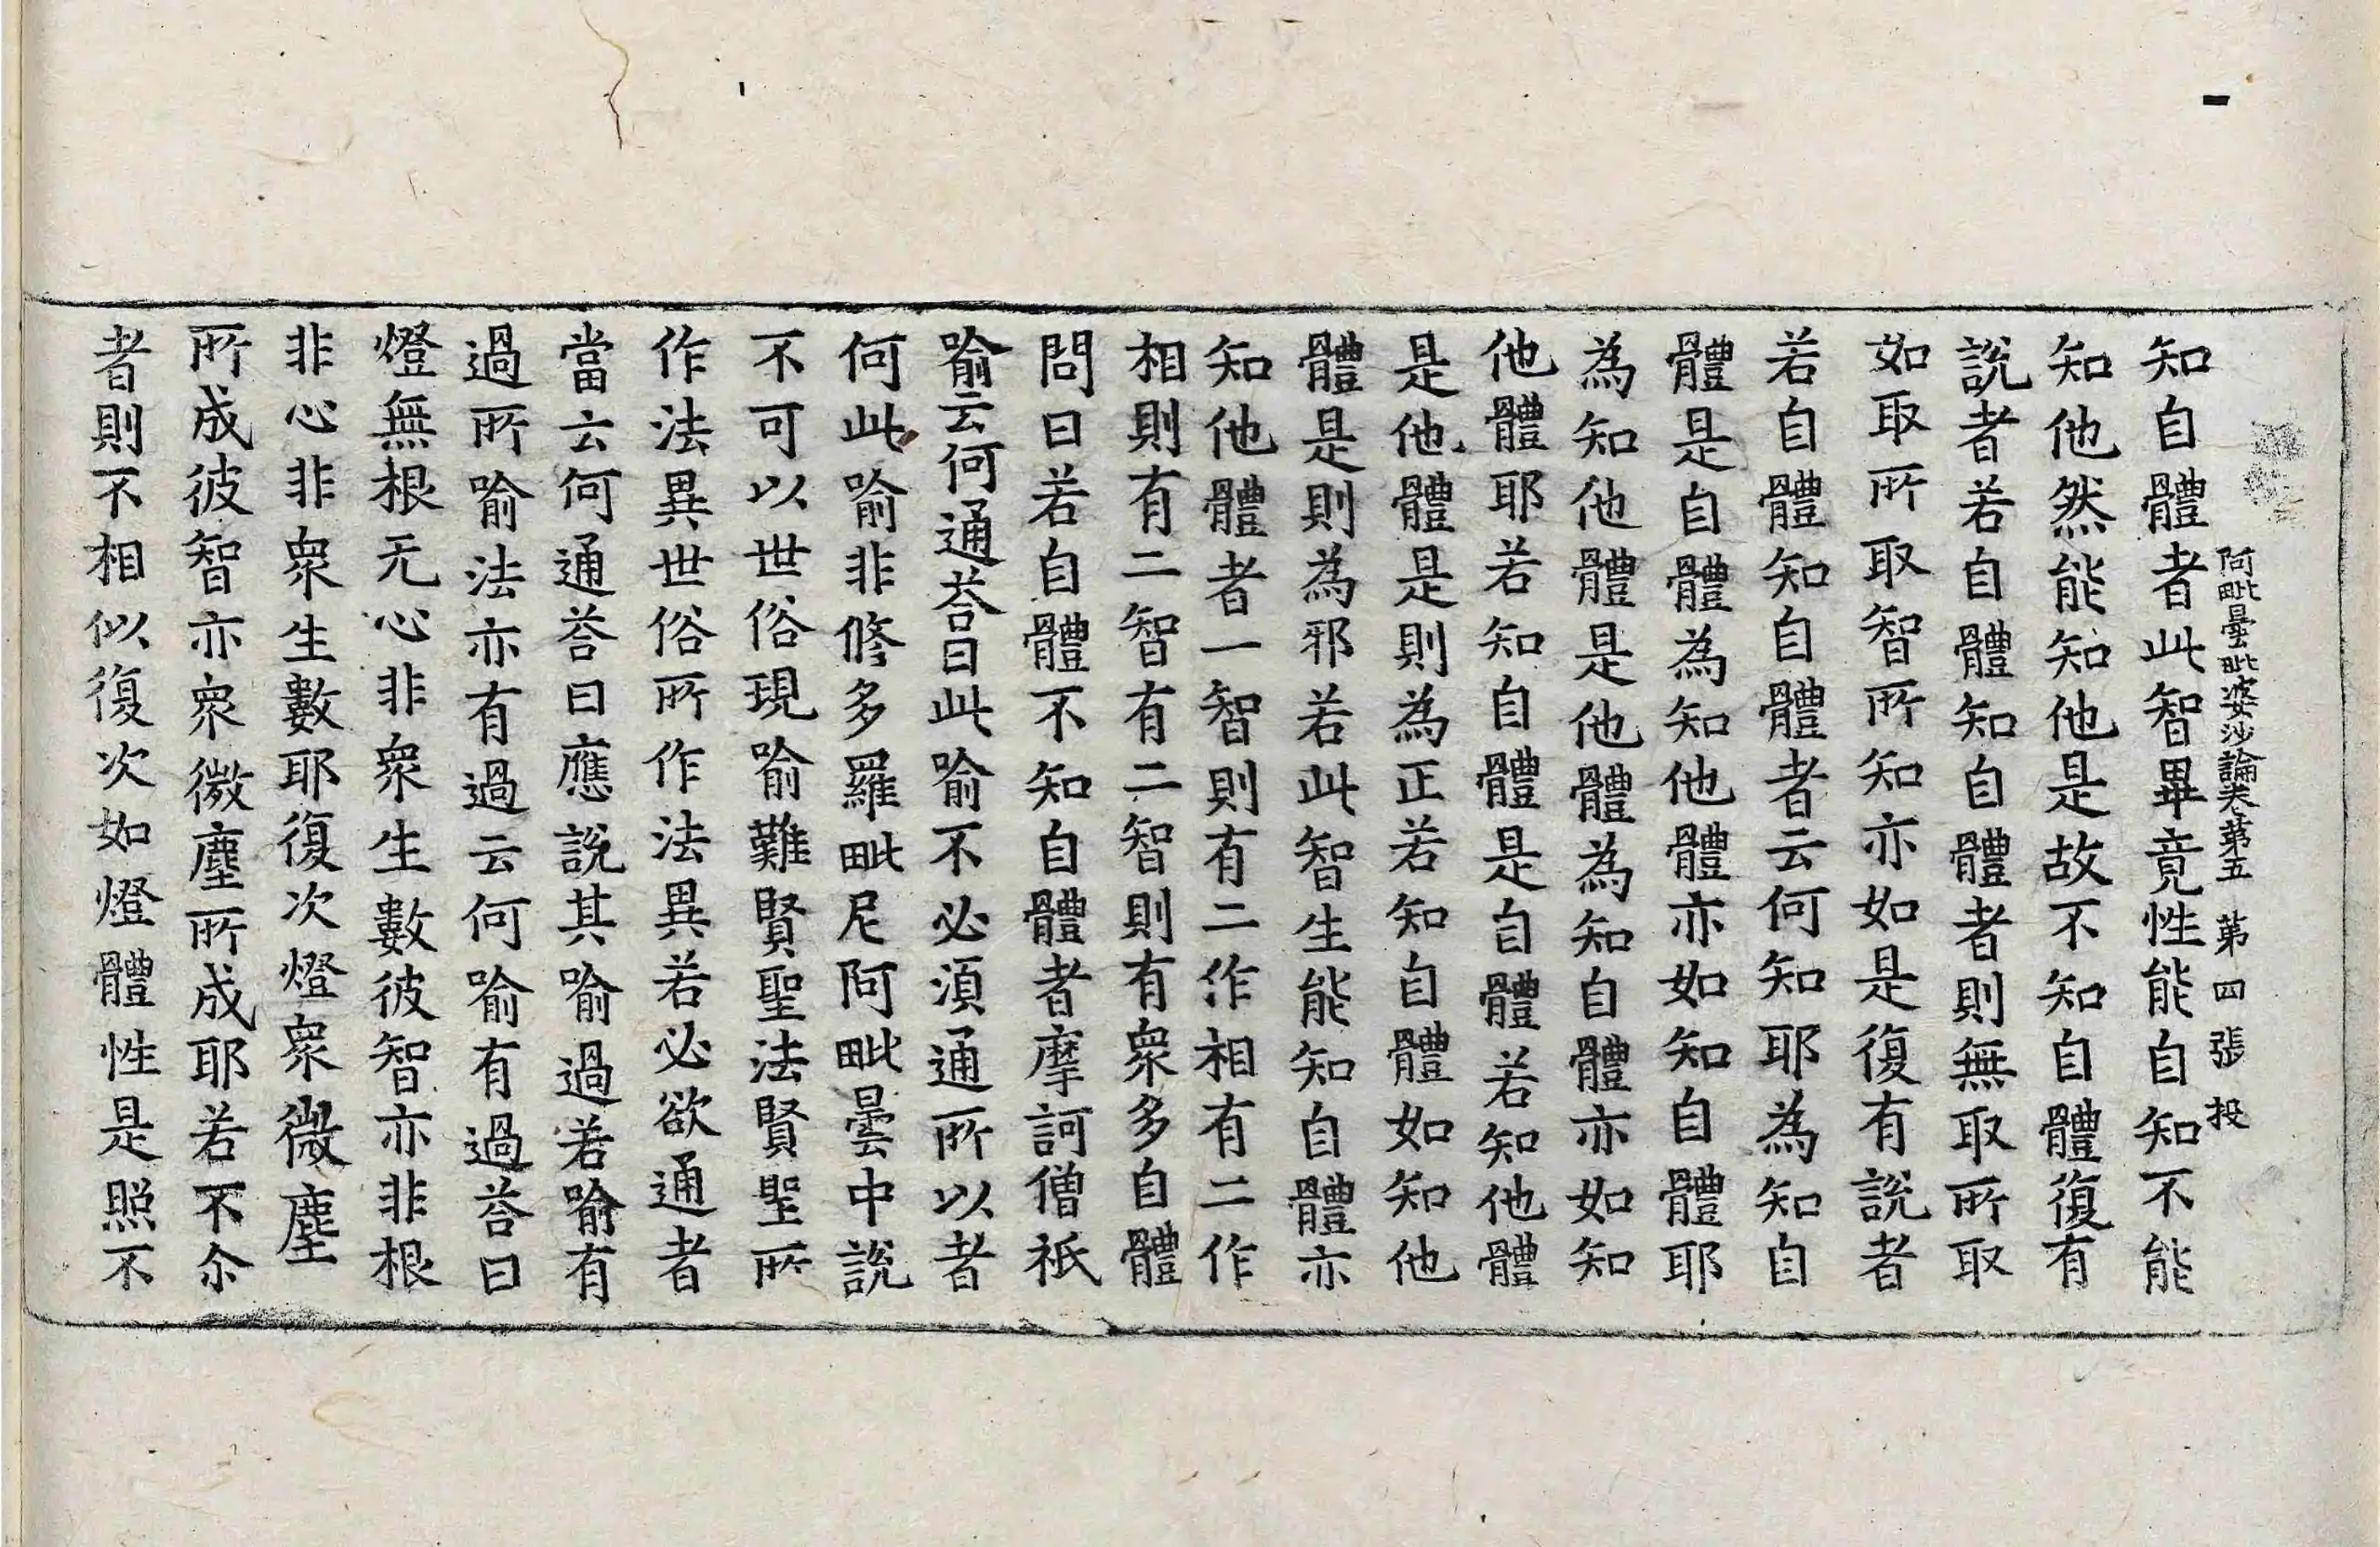 阿毗曇毗婆沙論卷第五　第四張　投
知自體者此智畢竟性能自知不能
知他然能知他是故不知自體復有
說者若自體知自體者則無取所取
如取所取智所知亦如是復有說者
若自體知自體者云何知耶為知自
體是自體為知他體亦如知自體耶
為知他體是他體為知自體亦如知
他體耶若知自體是自體若知他體
是他體是則為正若知自體如知他
體是則為邪若此智生能知自體亦
知他體者一智則有二作相有二作
相則有二智有二智則有眾多自體
問曰若自體不知自體者摩訶僧祇
喻云何通荅曰此喻不必須通所以者
何此喻非修多羅毗尼阿毗曇中說
不可以世俗現喻難賢聖法賢聖所
作法異世俗所作法異若必欲通者
當云何通荅曰應說其喻過若喻有
過所喻法亦有過云何喻有過荅曰
燈無根无心非眾生數彼智亦非根
非心非眾生數耶復次燈眾微塵
所成彼智亦眾微塵所成耶若不尒
者則不相似復次如燈體性是照不